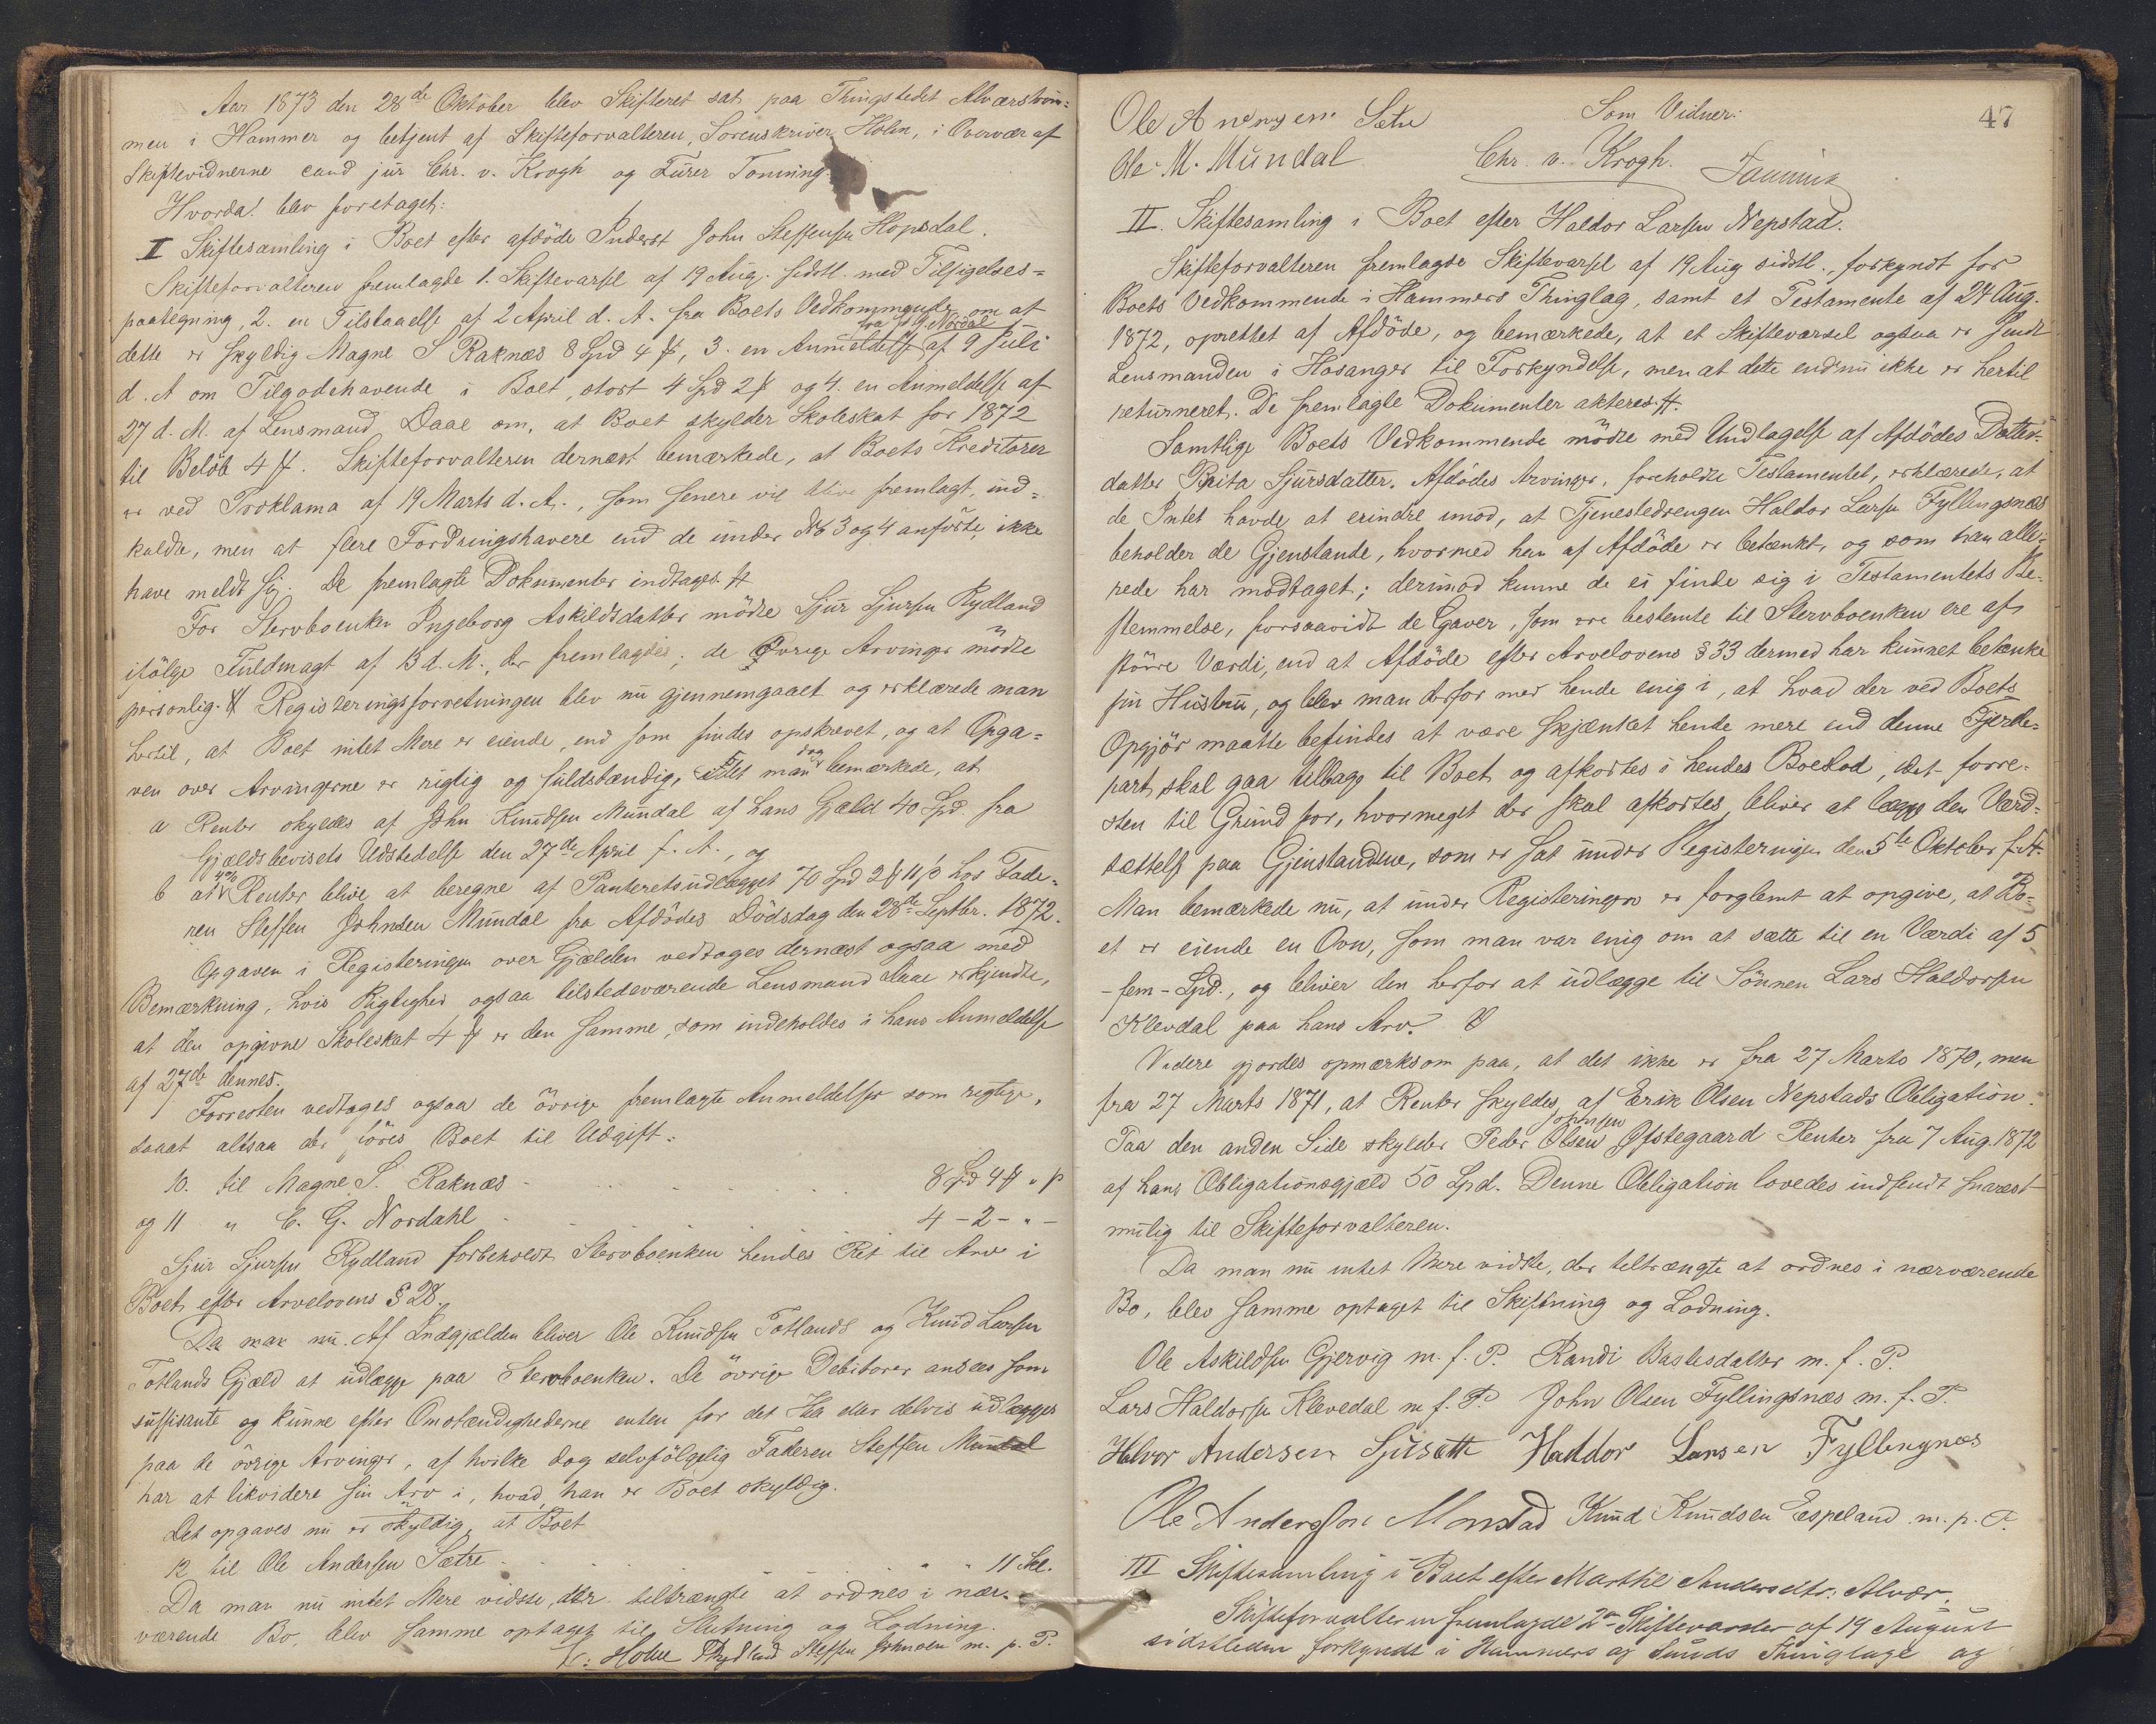 Aar 1873 den 28de Oktober blev Skifteret sat paa Thingstedet Alværström=
men i Hammer og betjent af Skifteforvalteren, Sorenskriver Holm, i Overvær af
Skiftevidnerne cand jur Chr. v. Krogh og Furer Tonning.
Hvorda! blev foretaget:
I Skiftesamling i Boet efter afdöde Inderst John Steffensen Hopsdal.
Skifteforvalteren fremlagde 1. Skiftevarsel af 19 Aug. sidstl. med Tilsigelses=
paategning, 2. en Tilstaaelse af 2 April d. A. fra Boets Vedkommende om at
dette er skyldig Magne S Raknæs 8 Spd 4 ℔, 3. en Anmeldelse fra C. G. Nordal af 9 Juli
d. A om Tilgodehavende i Boet, stort 4 Spd 2 ℔ og 4. en Anmeldelse af
27 d. M. af Lensmand Daae om, at Boet skylder Skoleskat for 1872
til Belöb 4 ℔. Skifteforvalteren dernæst bemærkede, at Boets Kreditorer
er ved Proklama af 19 Marts d. A., som senere vil blive fremlagt, ind=
kaldt, men at flere Fordringshavere end de under No 3 og 4 anförte, ikke
have meldt sig. De fremlagte Dokumenter indtages #
For Stervboenken Ingeborg Askildsdatter mödte Sjur Sjursen Rydland
ifölge Fuldmagt af 13 d. M., der fremlagdes; de Övrige Arvinger mödte
personlig. # Registreringsforretningen blev nu gjennemgaaet og erklærede man
hertil, at Boet intet Mere er eiende, end som findes opskrevet, og at Opga=
ven over Arvingerne er rigtig og fuldstændig, idet man dog bemærkede, at
a Renter skyldes af John Knudsen Mundal af hans Gjæld 40 Spd. fra
Gjældsbevisets Udstedelse den 27de April f. A., og
b at 4% Renter blive at beregne af Panteretsudlægget 70 Spd 2 ℔ 11 ß hos Fade=
ren Steffen Johnsen Mundal fra Afdödes Dödsdag den 28de Septbr. 1872.
Opgaven i Registeringen over Gjælden vedtoges dernæst ogsaa med
Bemærkning, hvis Rigtighed ogsaa tilstedeværende Lensmand Daae erkjendte,
at den opgivne Skoleskat 4 ℔ er den samme, som indeholdes i hans Anmeldelse
af 27de dennes.
Forresten vedtoges ogsaa de övrige fremlagte Anmeldelser som rigtige,
saaat altsaa der föres Boet til Udgift:
10. til Magne S. Raknæs - - - - 8 Spd 4 ℔ " ß
og 11 " C. G. Nordahl - - - - 4 - 2 - " -
Sjur Sjursen Rydland forbeholdt Stervboenken hendes Ret til Arv i
Boet efter Arvelovens § 28.
Da man nu. Af Indgjælden bliver Ole Knudsen Totlands og Knud Larsen
Totlands Gjæld at udlægge paa Stervboenken. De övrige Debitorer ansees som
suffisante og kunne efter Omstændighederne enten for det Hele eller delvis udlægges
paa de övrige Arvinger, af hvilke dog selvfölgelig Faderen Steffen Mundal
har at likvidere sin Arv i, hvad han er Boet skyldig.
Det opgaves nu er skyldig, at Boet
12 til Ole Andersen Sætre - - - - 11 Skl.
Da man nu intet Mere vidste, der tiltrængte at ordnes i nær=
værende Bo, blev samme optaget til Slutning og Lodning.
Holm Rydland Steffen Johnsen m. p. P.
47
Ole Andersen Sætre Som Vidner:
Ole M. Mundal Chr. v. Krogh. Tonning
II. Skiftesamling i Boet efter Haldor Larsen Nepstad.
Skifteforvalteren fremlagde Skiftevarsel af 19 Aug sidstl., forkyndt for
Boets Vedkommende i Hammers Thinglag, samt et Testamente af 24 Aug.
1872, oprettet af Afdöde, og bemærkede, at et Skiftevarsel ogsaa er sendt
Lensmanden i Hosanger til Forkyndelse, men at dette endnu ikke er hertil
returneret. De fremlagte Dokumenter akteres #.
Samtlige Boets Vedkommende mödte med Undtagelse af Afdödes Datter=
datter Brita Sjursdatter. Afdödes Arvinger, foreholdte Testamentet, erklærede, at
de Intet havde at erindre imod, at Tjenestedrengen Haldor Larsen Fyllingsnæs
beholder de Gjenstande, hvormed han af Afdöde er betænkt, og som han alle=
rede har modtaget; derimod kunne de ei finde sig i Testamentets Be=
stemmelse, forsaavidt de Gaver, som ere bestemte til Stervboenken ere af
större Værdi, end at Afdöde efter Arvelovens § 33 dermed har kunnet betænke
sin Hustru, og blev man derfor med hende enig i, at hvad der ved Boets
Opgjör maatte befindes at være skjænket hende mere end denne Fjerde=
part, skal gaa tilbage til Boet og afkortes i hendes Boeslod, idet forre=
sten til Grund for, hvormeget der skal afkortes, bliver at lægge den Værd=
sættelse paa Gjenstandene, som er sat under Registeringen den 5te Oktober f. A.
Man bemærkede nu, at under Registeringen er forglemt at opgive, at Bo=
et er eiende en Ovn, som man var enig om at sætte til en Værdi af 5
- fem - Spd., og bliver den herfor at udlægge til Sönnen Lars Haldorsen
Klevdal paa hans Arv.
Videre gjordes opmærksom paa, at det ikke er fra 27 Marts 1870, men
fra 27 Marts 1871, at Renter skyldes af Erik Olsen Nepstads Obligation.
Paa den anden Side skylder Peder Olsen Johnsen Øfstegaard Renter fra 7 Aug. 1872
af hans Obligationsgjæld 50 Spd. Denne Obligation lovedes indsendt snarest
mulig til Skifteforvalteren.
Da man nu intet Mere vidste, der tiltrængte at ordnes i nærværende
Bo, blev samme optaget til Skiftning og Lodning.
Ole Askildsen Gjervig m. f. P. Randi Bastesdatter m. f. P.
Lars Haldorsen Klevedal m f. P. John Olsen Fyllingsnæs m. f. P.
Halvor Andersen Haldor Larsen Fyllingnæs
Ole Anderssen Monstad Knud Knudsen Espeland m. p. P.
III Skiftesamling i Boet efter Marthe Andersdtr. Alvær.
Skifteforvalteren fremlagde 2de Skiftevarsler af 19 August
sidstleden forkyndt i Hammers og Sunds Thinglage og